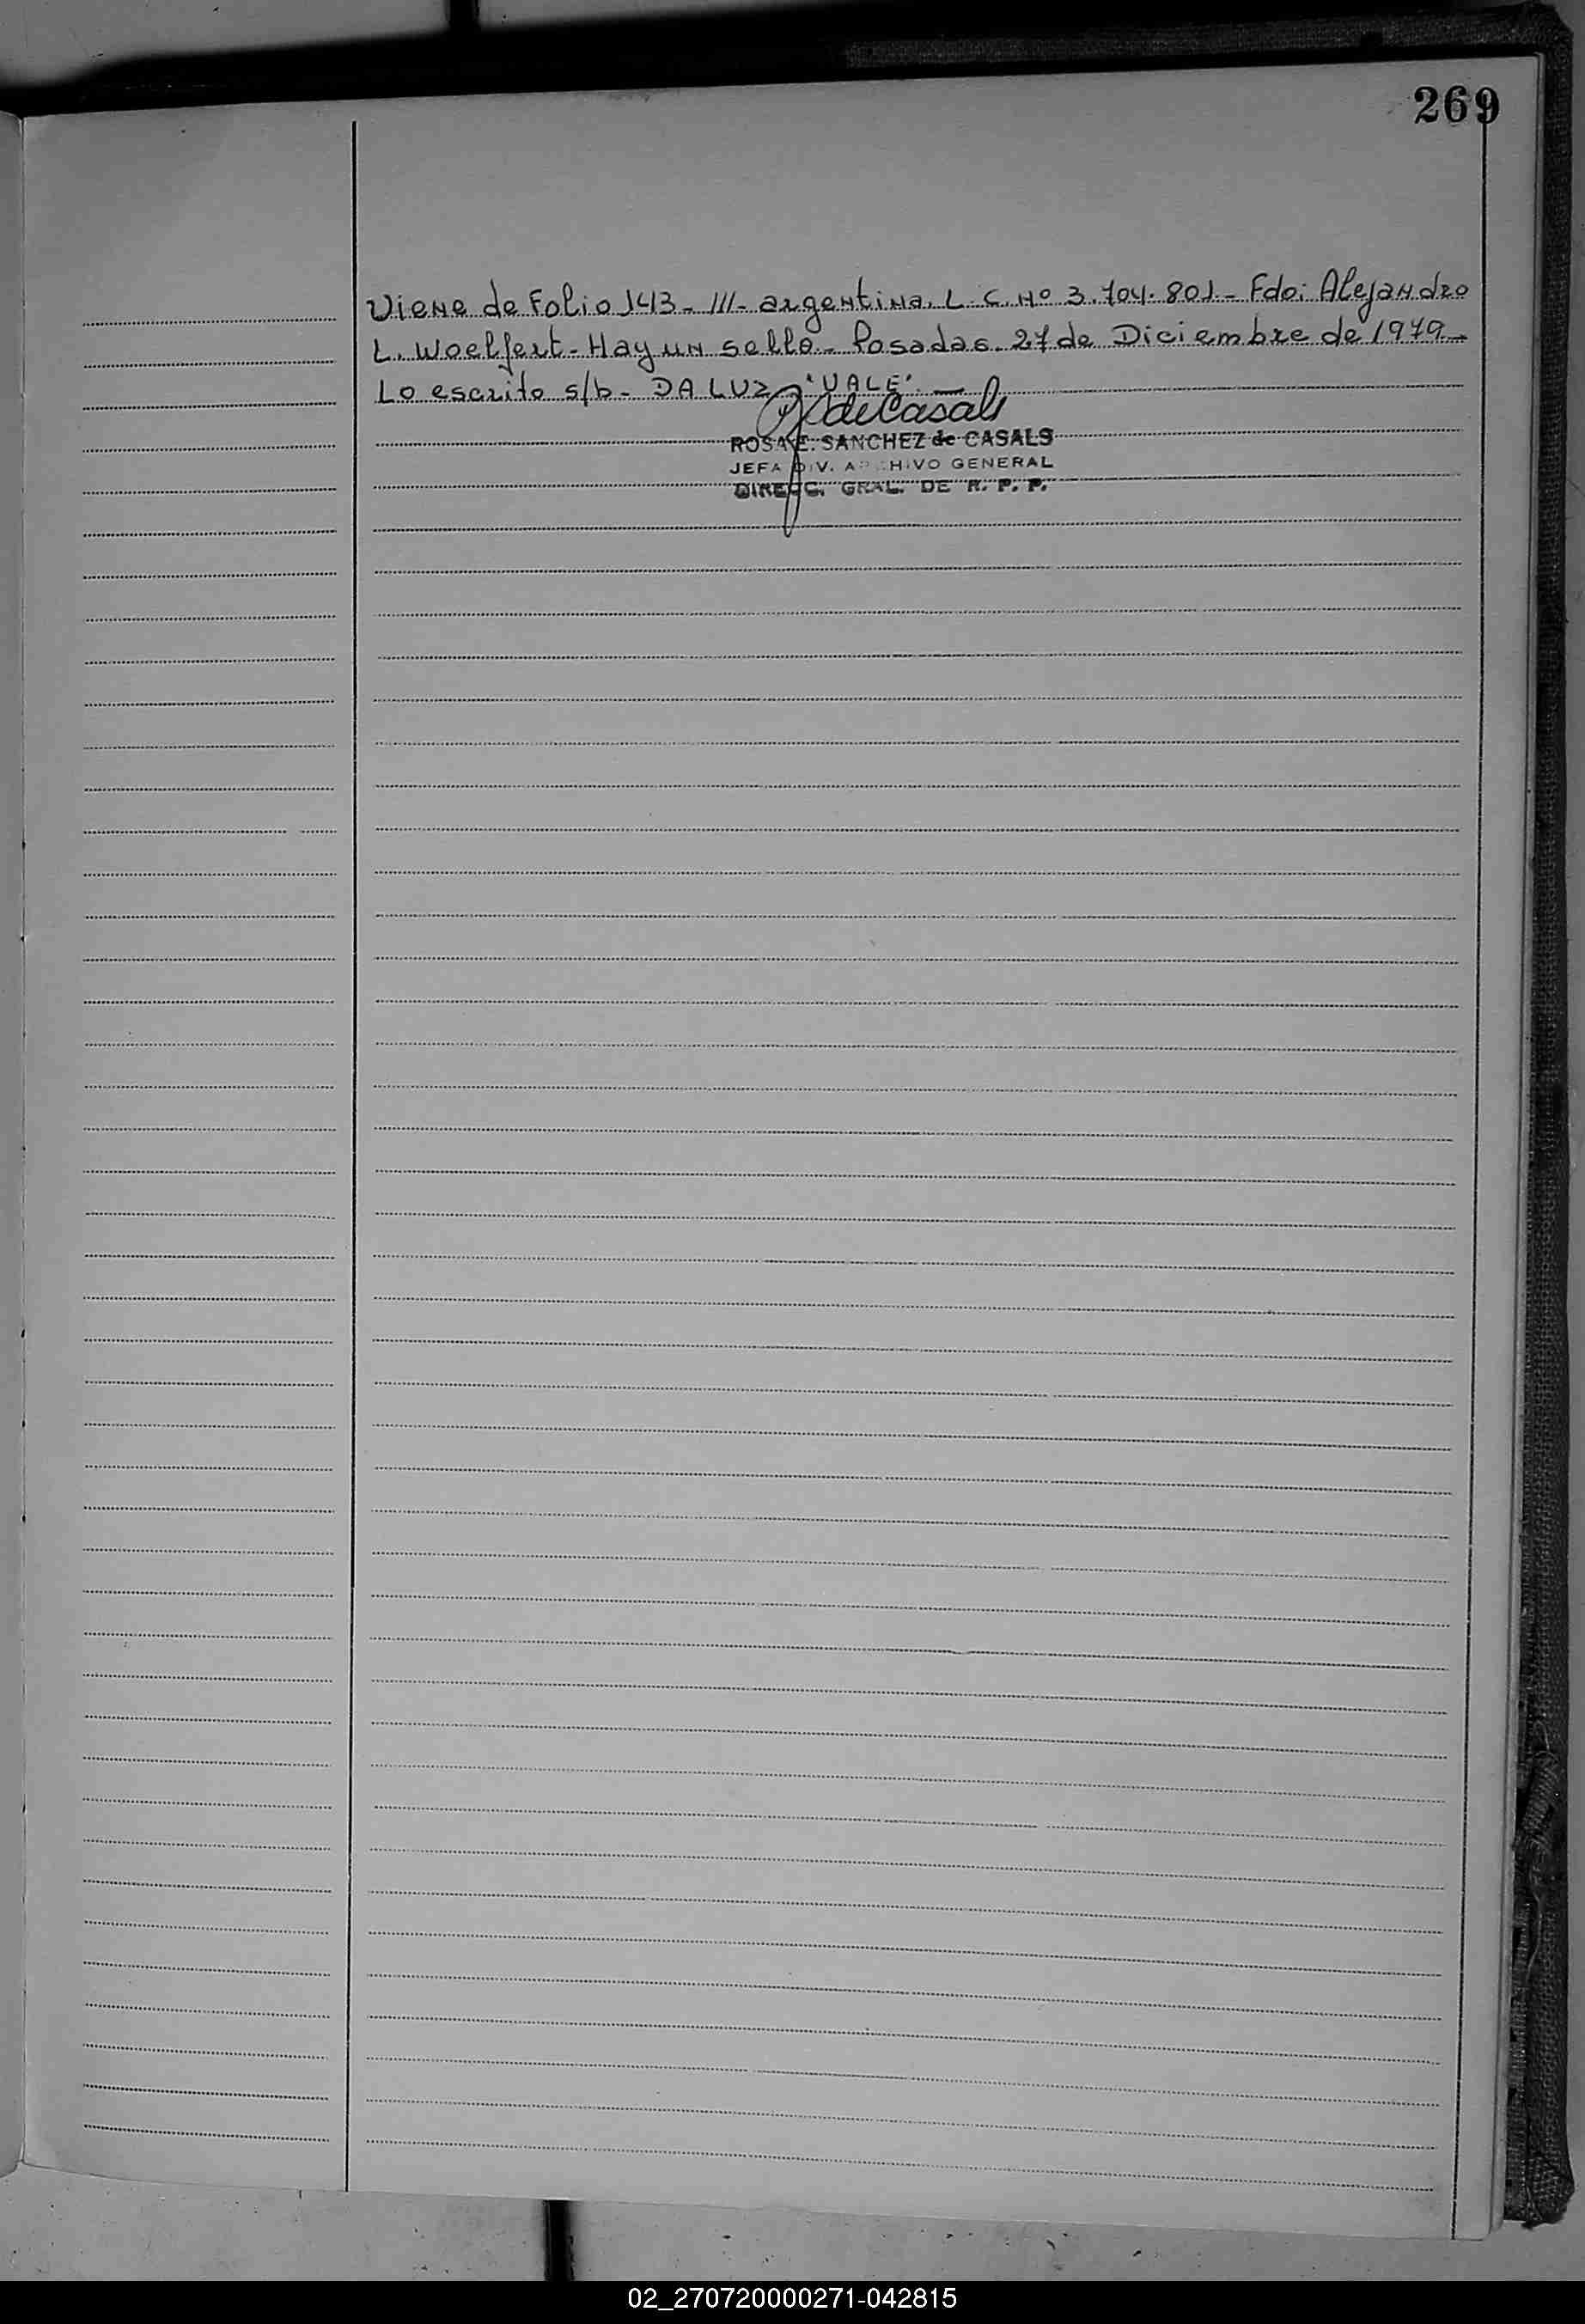 269
Viene de Folio 143 - /// - argentina. L. C. Nº 3.704.801. - Fdo: Alejandro
L. Woelfert - Hay un sello - Posadas. 27 de Diciembre de 1979 -
Lo escrito s/b - DA LUZ "VALE". —
R de Casals
ROSA E. SANCHEZ de CASALS
JEFA DIV. ARCHIVO GENERAL
DIRECC. GRAL. DE R. P. P.
02_270720000271-042815